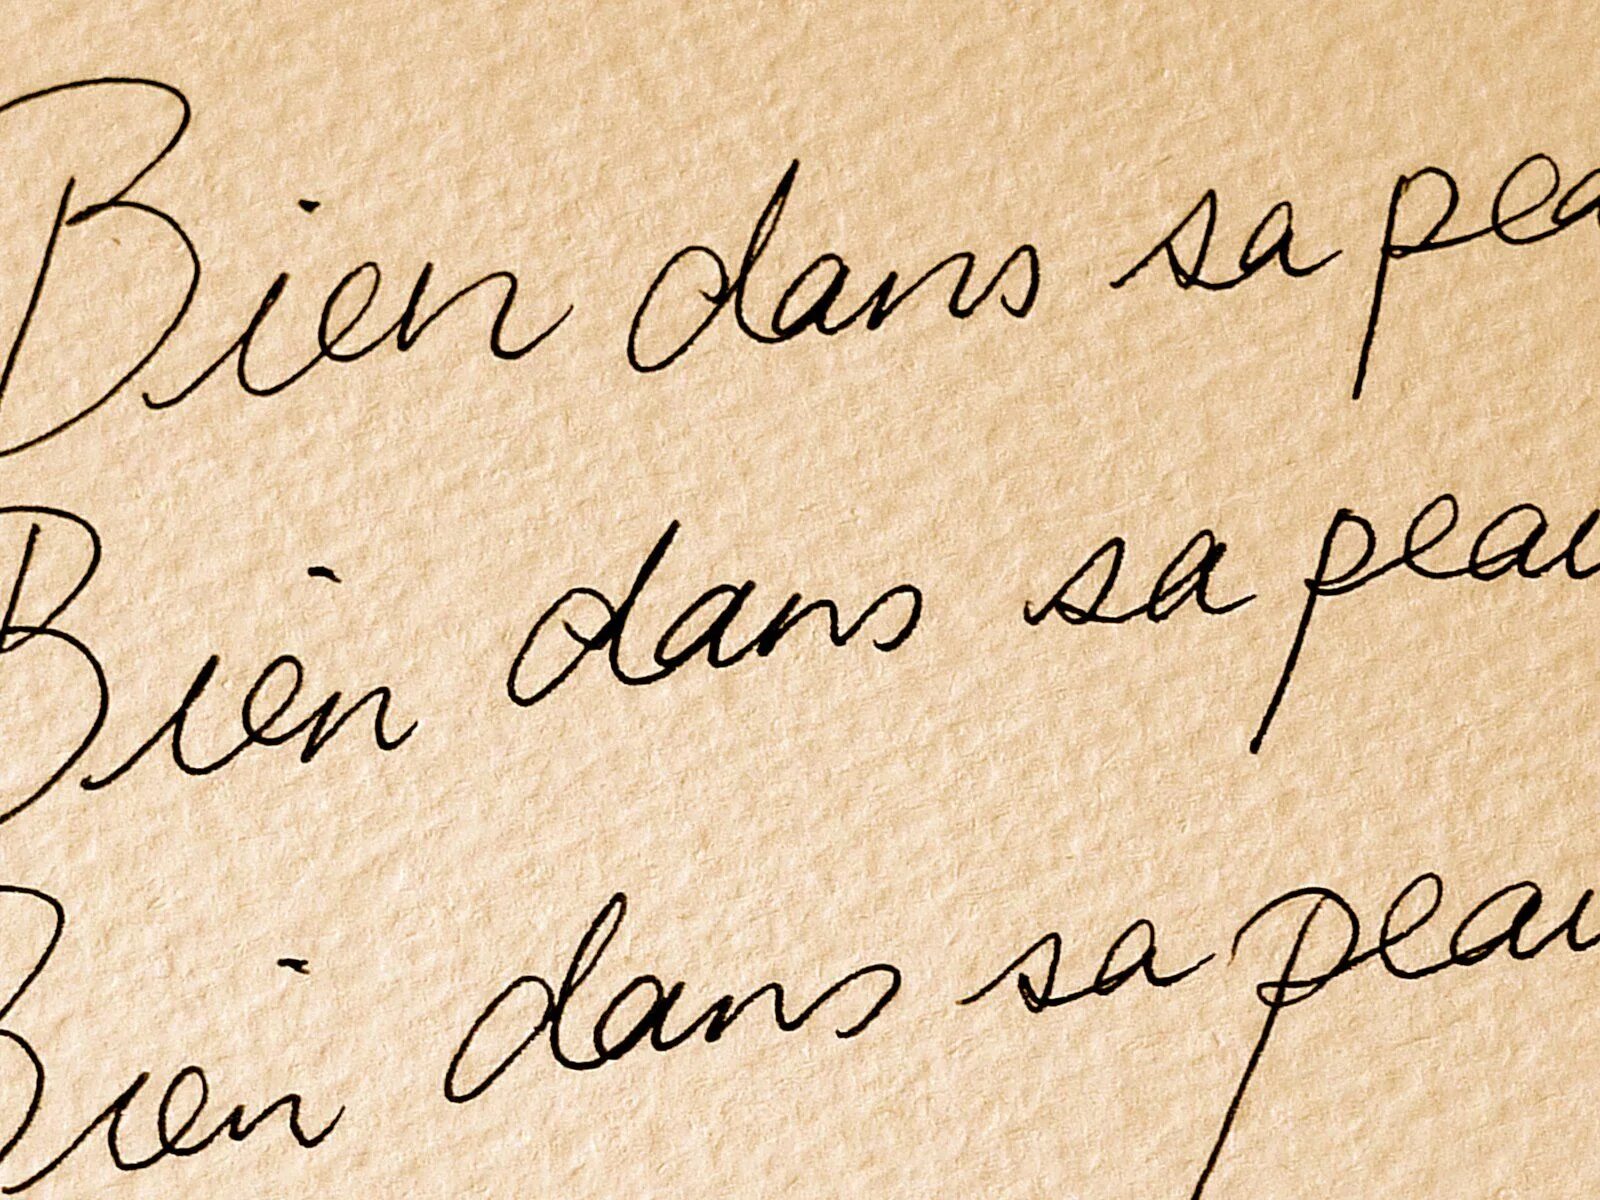 Bien dans sa pea
Bien dans sa peau
Bien dans sa peau